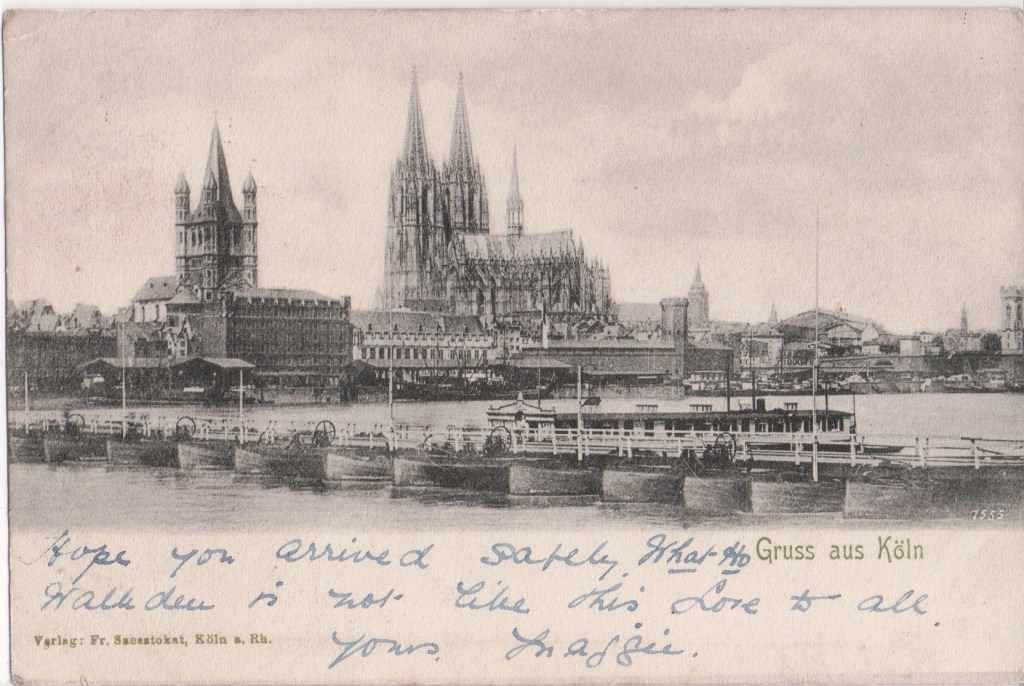 7555
Hope you arrived safely. What Ho
Gruss aus Köln
Walkden is not like this Love to all.
Verlag: Fr. Ssesztokat, Köln a. Rh.
yours. Maggie.